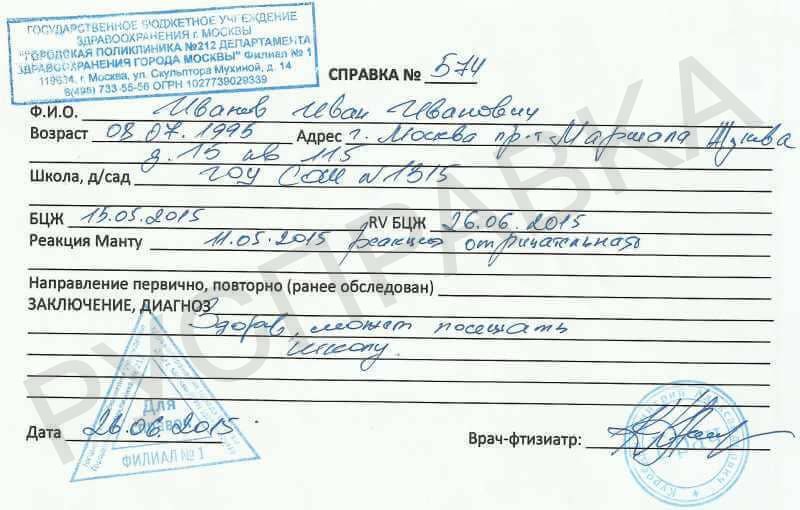 ГОСУДАРСТВЕННОЕ БЮДЖЕТНОЕ УЧРЕЖДЕНИЕ
ЗДРАВООХРАНЕНИЯ г. МОСКВЫ
"ГОРОДСКАЯ ПОЛИКЛИНИКА №212 ДЕПАРТАМЕНТА
ЗДРАВООХРАНЕНИЯ ГОРОДА МОСКВЫ" Филиал № 1
119634, г. Москва, ул. Скульптора Мухиной, д. 14
8(495) 733-55-56 ОГРН 1027739029339
СПРАВКА № 574
Ф.И.О. Иванов Иван Иванович
Возраст 08.07.1995 Адрес г. Москва пр-т Маршала Жукова
д. 15 кв 115
Школа, д/сад ГОУ СОШ №1315
БЦЖ 15.05.2015 RV БЦЖ 26.06.2015
Реакция Манту 11.05.2015 реакция отрицательная
Направление первично, повторно (ранее обследован)
ЗАКЛЮЧЕНИЕ, ДИАГНОЗ
Здоров, может посещать
школу.
Для
справок
Дата 26.06.2015 Врач-фтизиатр:
ФИЛИАЛ №1
РУСПРАВКА